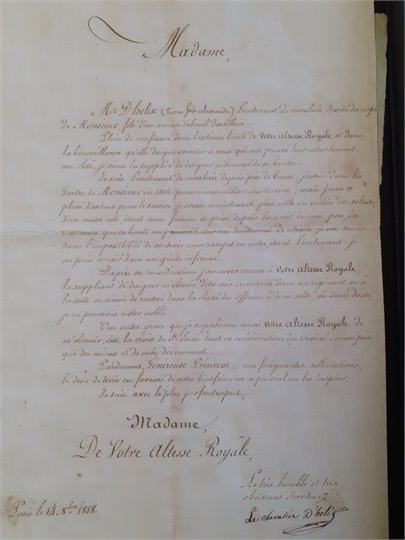 Madame,
Mr. D'helix (Louis fois alexandre) Lieutenant de cavalerie Garde du corps
de Monsieur, fils d'un ancien colonel d'artillerie.
Plein de confiance dans l'extrême bonté de Votre Altesse Royale et dans
la bienveillance qu'elle daigne accorder à ceux qui ont prouvé leur attachement
au Roi, je viens la supplier de daigner m'honorer de ses bontés.
Je suis Lieutenant de cavalerie depuis près de 6 ans, j'entrai dans les
Gardes de Monsieur en 1816 pour mieux utiliser mes services; mais jeune et
plein d'ardeur pour le service je serais maintenant plus utile au milieu des soldats,
d'un autre coté, étant sans fortune et privé depuis la mort de mon père, des
secours que sa bonté me sur son traitement de retraite, je me trouve
dans l'impossibilité de soutenir mon rang; en outre, étant Lieutenant je
ne puis servir dans un grade inférieur.
D'après ces considérations j'ose avoir recours à Votre Altesse Royale,
la suppliant de daigner m'obtenir d'être mis en activité dans un régiment ou à
la suite, ou sinon de rentrer dans la classe des officiers à demi solde, où sans doute
je ne pourrais rester oublié.
Une autre grace que je supplierai aussi Votre Altesse Royale de
m'obtenir, c'est la croix de St. Louis tout en considération des services de mon père
que des miens et de mon dévouement.
Pardonnez, Généreuse Princesse, mes fatigantes sollicitations,
le désir de tenir ces faveurs de votre bienfaisance a pu seul me les inspirer.
Je suis avec le plus profond respect,
Madame,
De Votre Altesse Royale,
Le très humble et très
obéissant Serviteur
Le chevalier D'helix
Paris le 14. 8bre 1818.